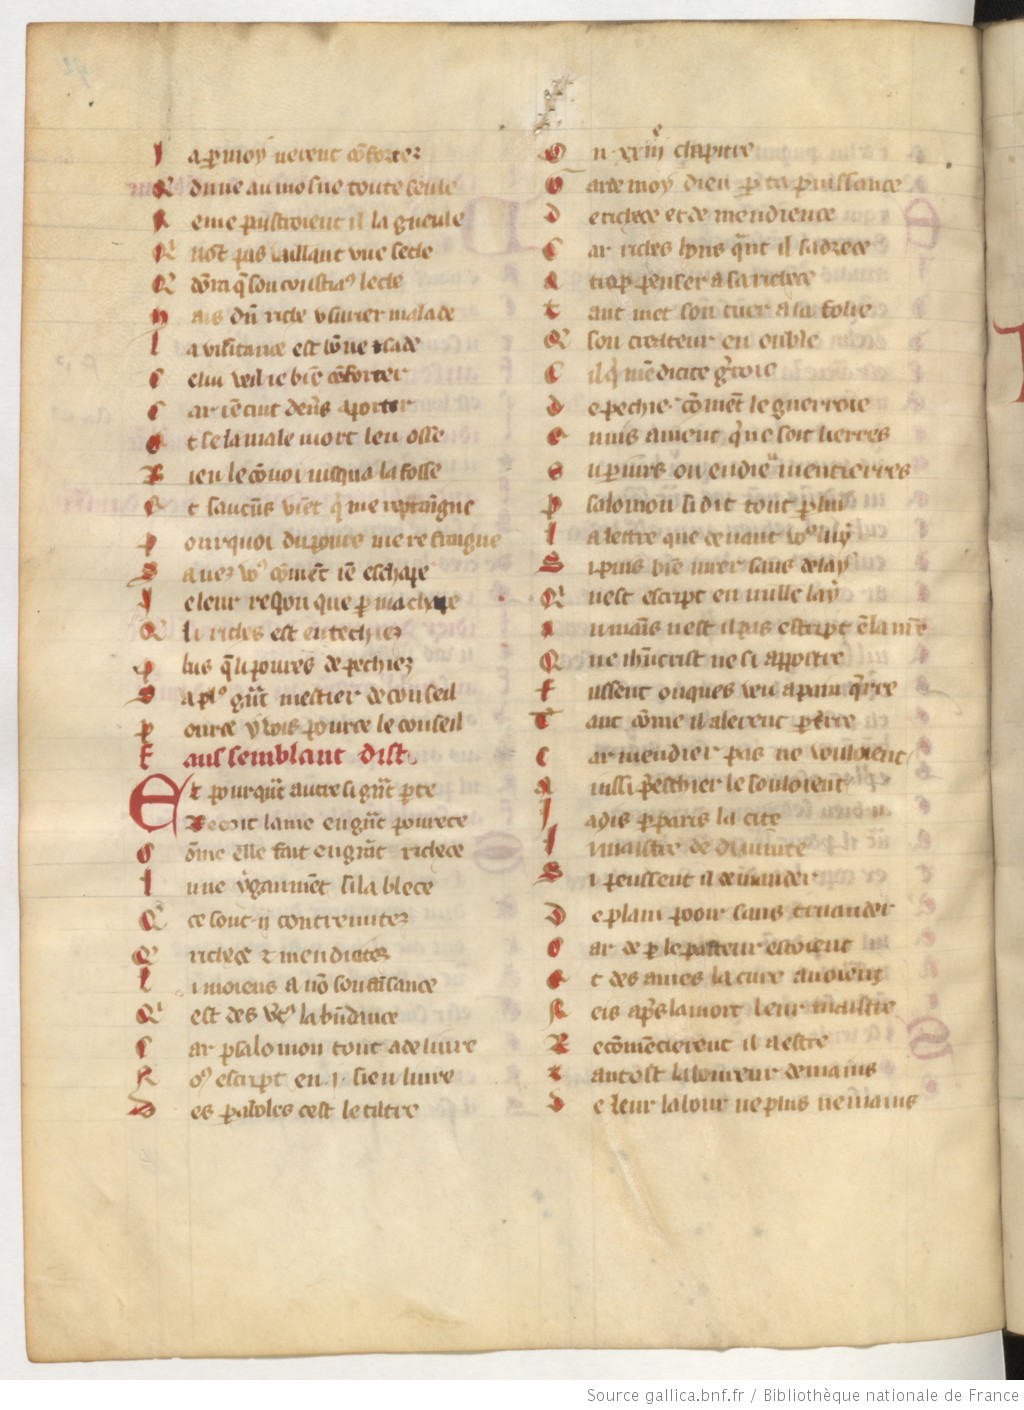 J a p moy veuent cõforter
Q dune aumosne toute seule
R eme paistroient il la gueule
Q nõt pas vaillant vne seche
Q dõra q̃ son coustiau leche
M ais dũ riche vsurier malade
L a visitance est bõne
C elui veil ie biẽ cõforter
C ar iẽ cuit deñs aporter
E t se la male mort len osse
B ien le cõuoi iusqua la fosse
E t saucũs viẽt q̇ me repraigne
P ourquoi du poure me restraigne
S auez vos cõmẽt iẽ eschape
J e leur respon que p ma chape
Q li riches est entechiez
P lus q̃ li poures de pechiez
S a plus grãt mestier de conseil
P ource y vois pource le conseil
F aus semblant dist
Et pourquãt autresi grãt perte
Recoit lame en grãt pourete
C õme elle fait en grãt richece
L une griganmẽt si la blece
Q ce sont ij contremitez
Q richece et mendicitez
L i moiens a nõ souffisance
Q est des vertus labũdance
C ar psalomon tout a deliure
N os escript en .i. sien liure
D es paraboles cest le tiltre
O u xxiije chapitre
G arde moy dieu p ta puissance
D e richece et de mendience
C ar riches hons quãt il sadrece
A trop penser a sa richece
T ant met son cuer a la folie
Q son createur en oublie
C il q̇ mẽdicite guerroie
D e pechie cõmẽt le guerroie
E nuis auient q̇ ne soit lierres
O u pariurs ou en dieu mentierres
P salomon si dit tout p lui
L a lettre que deuant vos luy
S i puis biẽ iurer sans delay
Q nest escript en nulle lay
A u mains nest il pas escript ẽ la nr̃e
Q ue ihũcrist ne si appostre
F ussent onques veu a pain q̃rre
T ant cõme il alerent p terre
C ar mendier pas ne vouloient
A iussi p̃eschier le souloient
J adis p paris la cite
L i maistre de diuinite
S i peussent il demander
D e plain pooir sans truander
C ar de p le pasteur estoient
E t des ames la cure auoient
N eis ap̃s la mort leur maistre
R ecõmecierent il a estre
T antost laboureur de mains
D e leur labour ne plus ne mains
Source gallica.bnf.fr / Bibliothèque nationale de France